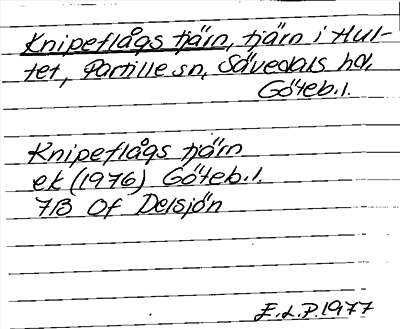 Knipeflågs tjärn, tjärn i Hul-
tet, Partille sn, Sävedals hd,
Göteb.l.
Knipeflågs tjärn
ek (1976) Göteb.l.
7B Of Delsjön
E.L.P. 1977